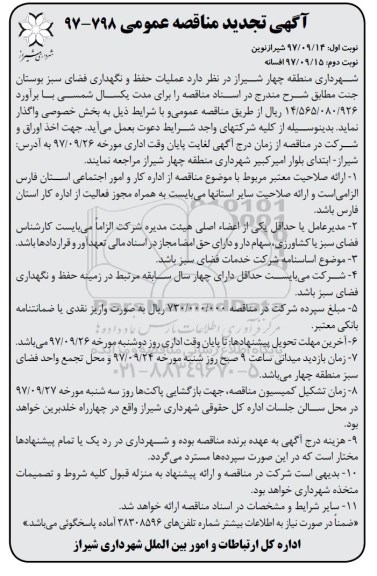 آگهی تجدید مناقصه عمومی ۷۹۸-۹۷
شهرداری شیراز
نوبت اول: ۹۷/۰۹/۱۴ شیرازنوین
نوبت دوم: ۹۷/۰۹/۱۵ افسانه
شهرداری منطقه چهار شیراز در نظر دارد عملیات حفظ و نگهداری فضای سبز بوستان
جنت مطابق شرح مندرج در اسناد مناقصه را برای مدت یکسال شمسی با برآورد
۱۴/۵۶۵/۰۸۰/۹۲۶ ریال از طریق مناقصه عمومی‌و با شرایط ذیل به بخش خصوصی واگذار
نماید. بدینوسیله از کلیه شرکتهای واجد شرایط دعوت بعمل می‌آید. جهت اخذ اوراق و
شرکت در مناقصه از زمان درج آگهی لغایت پایان وقت اداری مورخه ۹۷/۰۹/۲۶ به آدرس:
شیراز- ابتدای بلوار امیرکبیر شهرداری منطقه چهار شیراز مراجعه نمایند.
۱- ارائه صلاحیت معتبر مربوط با موضوع مناقصه از اداره کار و امور اجتماعی استان فارس
الزامی‌است و ارائه صلاحیت سایر استانها می‌بایست به همراه مجوز فعالیت از اداره کار استان
فارس باشد.
۲- مدیرعامل یا حداقل یکی از اعضاء اصلی هیئت مدیره شرکت الزاماً می‌بایست کارشناس
فضای سبز یا کشاورزی، سهام دار و دارای حق امضا مجاز در اسناد مالی تعهدآور و قراردادها باشد.
۳- موضوع اساسنامه شرکت خدمات فضای سبز باشد.
۴- شرکت می‌بایست حداقل دارای چهار سال سابقه مرتبط در زمینه حفظ و نگهداری
فضای سبز باشد.
۵- مبلغ سپرده شرکت در مناقصه ۷۳۰/۰۰۰/۰۰۰ ریال به صورت واریز نقدی یا ضمانتنامه
بانکی معتبر.
۶- آخرین مهلت تحویل پیشنهادها: تا پایان وقت اداری روز دوشنبه مورخه ۹۷/۰۹/۲۶ می‌باشد.
۷- زمان بازدید میدانی ساعت ۹ صبح روز شنبه مورخه ۹۷/۰۹/۲۴ و محل تجمع واحد فضای
سبز منطقه چهار می‌باشد.
۸- زمان تشکیل کمیسیون مناقصه، جهت بازگشایی پاکت‌ها روز سه شنبه مورخه ۹۷/۰۹/۲۷
در محل سالن جلسات اداره کل حقوقی شهرداری شیراز واقع در چهارراه خلدبرین خواهد
بود.
۹- هزینه درج آگهی به عهده برنده مناقصه بوده و شهرداری در رد یک یا تمام پیشنهادها
مختار است که در این صورت سپرده‌ها مسترد می‌گردد.
۱۰- بدیهی است شرکت در مناقصه و ارائه پیشنهاد به منزله قبول کلیه شروط و تصمیمات
متخذه شهرداری خواهد بود.
۱۱- سایر شرایط و مشخصات در اسناد مناقصه ارائه خواهد شد.
«ضمناً در صورت نیاز به اطلاعات بیشتر شماره تلفن‌های ۳۸۳۰۸۵۹۶ آماده پاسخگوئی می‌باشد.»
اداره کل ارتباطات و امور بین الملل شهرداری شیراز
۰۲۱-۸۸۳۴۹۶۷۰-۵